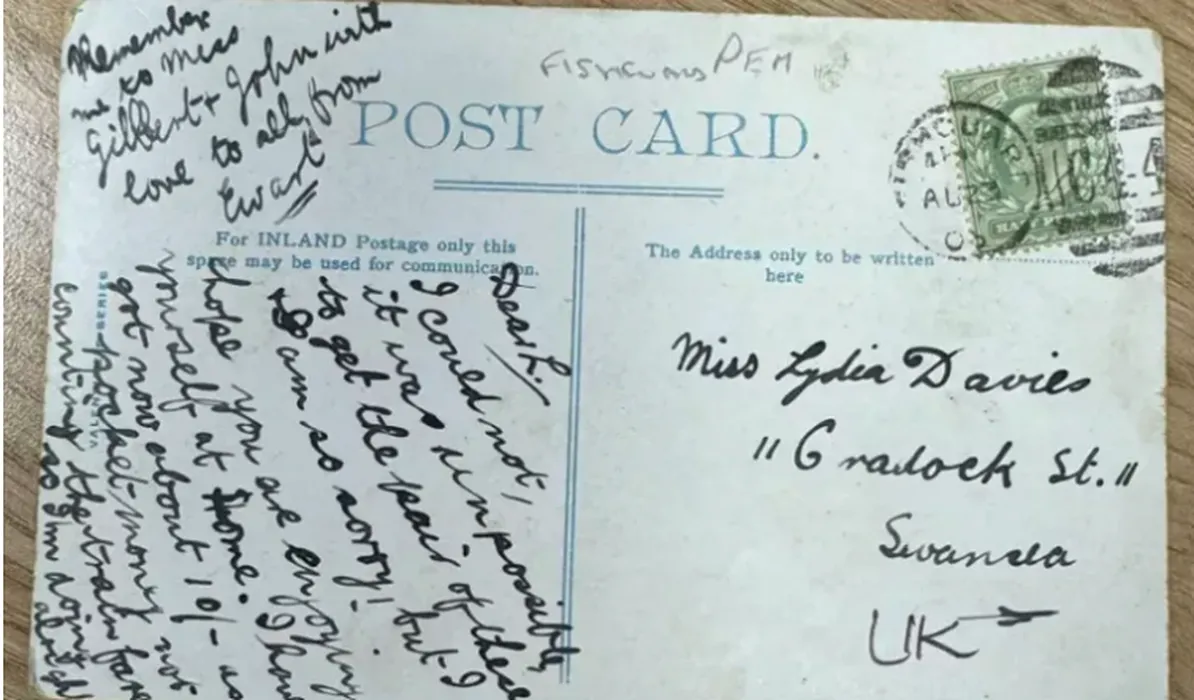 Remember
me to Miss
Gilbert + John with
love to all, from
Ewart
FISHGUARD PEM
POST CARD.
For INLAND Postage only this
space may be used for communication.
The Address only to be written
here
FISHGUARD
AU 23
Dear L.
I could not,
it was impossible,
to get the pair of these
I am so sorry! but I
hope you are enjoying
yourself at Home. I have
got now about 10/- as
pocket-money not
counting the train fare
so I'm doing
SERIES
Miss Lydia Davies
"Cradock St."
Swansea
UK